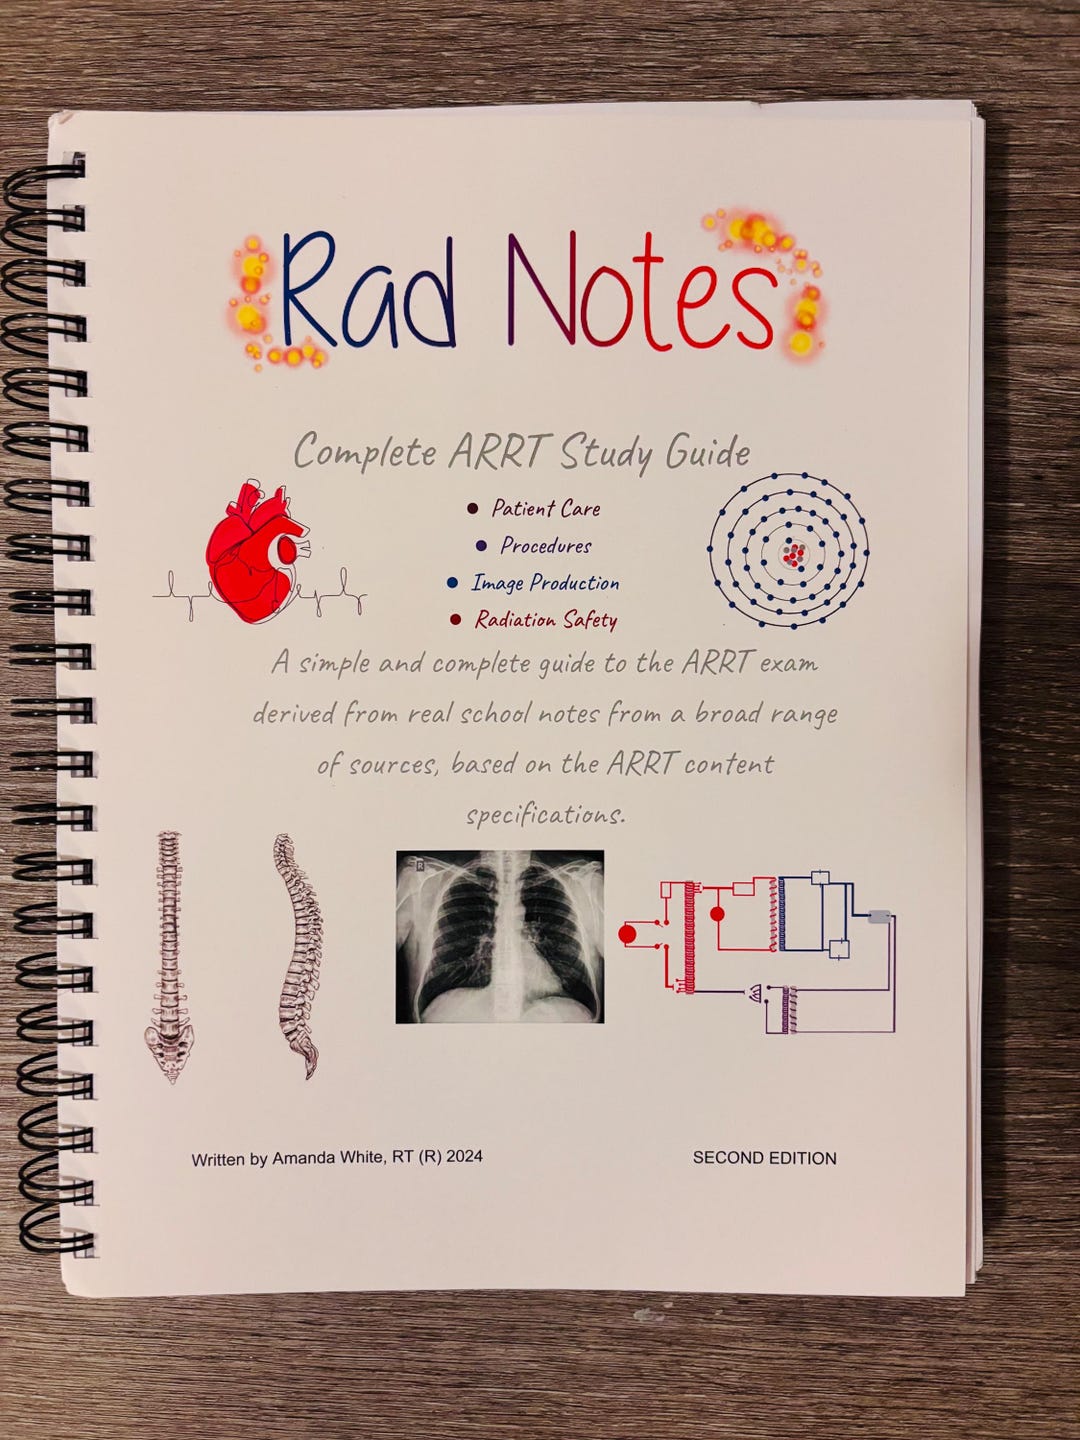 Rad Notes
Complete ARRT Study Guide
● Patient Care
● Procedures
● Image Production
● Radiation Safety
A simple and complete guide to the ARRT exam
derived from real school notes from a broad range
of sources, based on the ARRT content
specifications.
R
Written by Amanda White, RT (R) 2024
SECOND EDITION